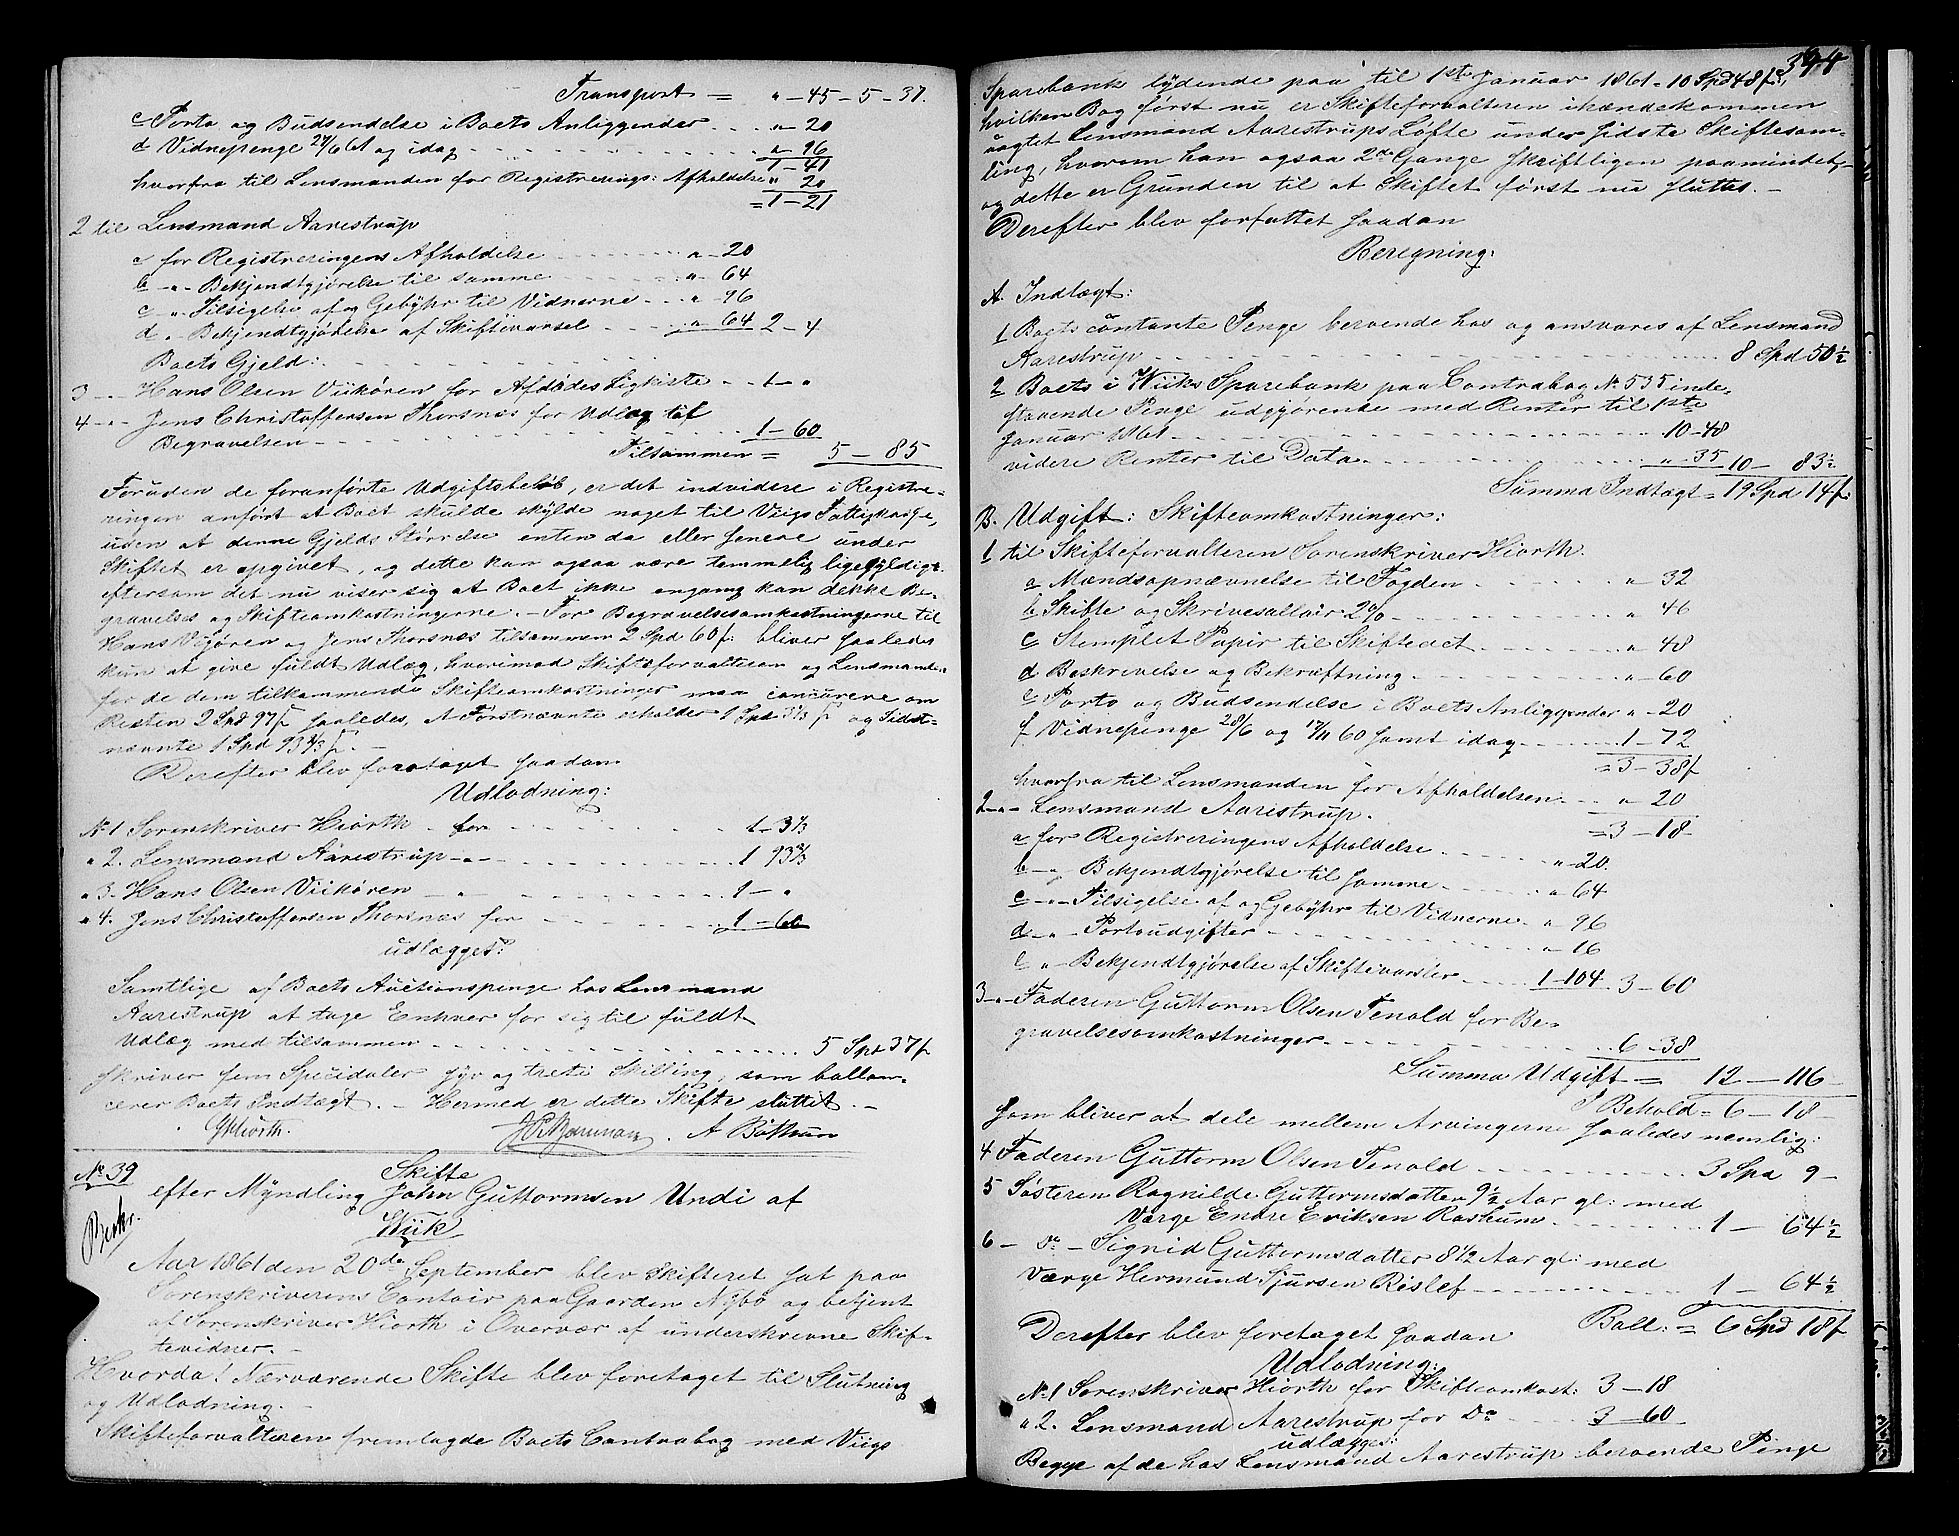 Transport = " - 45 - 5 - 37.
c Porto og Budsendelse i Boets Anliggender . . . "- 20
d Vidnepenge 24/6 61 og idag . . . "- 96
1 - 41
hvorfra til Lensmanden for Registrerings: Afholdelse " 20
= 1 - 21
2 til Lensmand Aarestrup
a for Registreringens Afholdelse . . . "- 20
b - " - Bekjendtgjørelse til samme . . . " - 64
c - " - Tilsigelse af og Gebyhr til Vidnerne . . . " - 96
d " - Bekjendtgjørelse af Skiftevarsel . . . " 64 2 - 4
Boets Gjeld:
3 - " - Hans Olsen Viikøren for Afdødes Ligkiste . . . 1 - "
4 - " - Jens Christoffersen Thorsnæs for Udlæg til
Begravelsen . . . 1 - 60
Tilsammen = 5 - 85
Foruden de foranførte Udgiftsbeløb, er det indvidere i Registre-
ringen anført at Boet skulde skylde noget til Viigs Fattigkasse,
uden at denne Gjelds Størrelse enten da eller senere under
Skiftet er opgivet, og dette kan ogsaa være temmelig ligegyldigt
eftersom det nu viser sig at Boet ikke engang kan dekke Be-
gravelses og Skifteomkostningerne. - For Begravelsesomkostningerne til
Hans Viigøren og Jens Thorsnæs tilsammen 2 Spd 60 f. bliver saaledes
kun at give fuldt Udlæg, hvorimod Skifteforvalteren og Lensmanden
for de dem tilkommende Skifteomkostninger maa concurere om
Resten 2 Spd 97 f saaledes, at Førstnævnte erholder 1 Spd 3 1/3 f og Sidst-
nævnte 1 Spd 93 2/3 f. -
Derefter blev foretaget saadan
Udlodning:
No 1 Sorenskriver Hiorth - for . . . 1 - 3 1/3
" 2. Lensmand Aarestrup - " - . . . 1 93 2/3
" 3. Hans Olsen Viikøren - " - . . . 1 - "
" 4. Jens Christoffersen Thorsnæs for . . . 1 - 60
udlægges:
Samtlige af Boets Auctionspenge hos Lensmand
Aarestrup at tage Enhver for sig til fuldt
Udlæg med tilsammen . . . 5 Spd 37 f
skriver fem Speciedaler syv og treti Skilling, som ballan-
cerer Boets Indtægt. - Hermed er dette Skifte sluttet. -
GHiorth. A Bøthun
No 39
Skifte
efter Myndling John Guttormsen Undi af
Wiik
Beskr.
Aar 1861 den 20de September blev Skifteret sat paa
Sorenskriverens Contoir paa Gaarden Nybø og betjent
af Sorenskriver Hiorth i Overvær af underskrevne Skif-
tevidner. -
Hvorda! Nærværende Skifte blev foretaget til Slutning
og Udlodning. -
Skifteforvalteren fremlagde Boets Contrabog med Viigs
394
Sparebank lydende paa til 1ste Januar 1861 - 10 Spd 48 f,
hvilken Bog først nu er Skifteforvalteren ihændekommen
uagtet Lensmand Aarestrups Løfte under sidste Skiftesam-
ling, hvorom han ogsaa 2de Gange skriftligen paamindet,-
og dette er Grunden til at Skiftet først nu sluttes. -
Derefter blev forfattet saadan
Beregning:
A. Indtægt:
1 Boets contante Penge beroende hos og ansvares af Lensmand
Aarestrup . . . 8 Spd 50 1/2
2 Boets i Wiiks Sparebank paa Contrabog No 535 inde-
staaende Penge udgjørende med Renter til 1ste
Januar 1861 . . . 10 - 48
videre Renter til Dato . . . " 35 10 - 83 1/2
Summa Indtægt = 19 Spd 14 f.
B. Udgift: Skifteomkostninger:
1 til Skifteforvalteren Sorenskriver Hiorth.
a Mandsopnævnelse til Fogden . . . " 32
b Skifte og Skrivesallair 2% . . . " 46
c Stemplet Papir til Skifteact . . . " 48
d Beskrivelse og Bekræftning . . . " - 60
e Porto og Budsendelse i Boets Anliggender " - 20
f Vidnepenge 28/6 og 17/11 60 samt idag . . . 1 - 72
= 3 - 38 f
hvorfra til Lensmanden for Afholdelsen . . . " 20
= 3 - 18
2 - " - Lensmand Aarestrup.
a for Registreringens Afholdelse . . . " - 20.
b - " - Bekjendtgjørelse til samme . . . " 64
c - " - Tilsigelse af og Gebyhr til Vidnerne . " 96
d - " - Portoudgifter . . . " 16
e " - Bekjendtgjørelse af Skiftevarsler . . . 1 - 104 3 - 60
3 - " - Faderen Guttorm Olsen Tenold for Be-
gravelsesomkostninger . . . 6 - 38
Summa Udgift = 12 - 116
I Behold = 6 - 18
som bliver at dele mellem Arvingerne saaledes nemlig:
4 Faderen Guttorm Olsen Tenold . . . 3 Spd 9 -
5 Søsteren Ragnilde Guttormsdatter 9 1/2 Aar gl: med
Værge Endre Eriksen Røshum . . . 1 - 64 1/2
6 - do - Signid Guttormsdatter 8 1/2 Aar gl: med
Værge Hermund Sjursen Rislef . . . 1 - 64 1/2
Ball: = 6 Spd 18 f
Derefter blev foretaget saadan
Udlodning:
No 1 Sorenskriver Hiorth for Skifteomkost: 3 - 18
" 2. Lensmand Aarestrup for Do . . . 3 - 60
udlægges:
Begge af de hos Lensmand Aarestrup beroende Penge